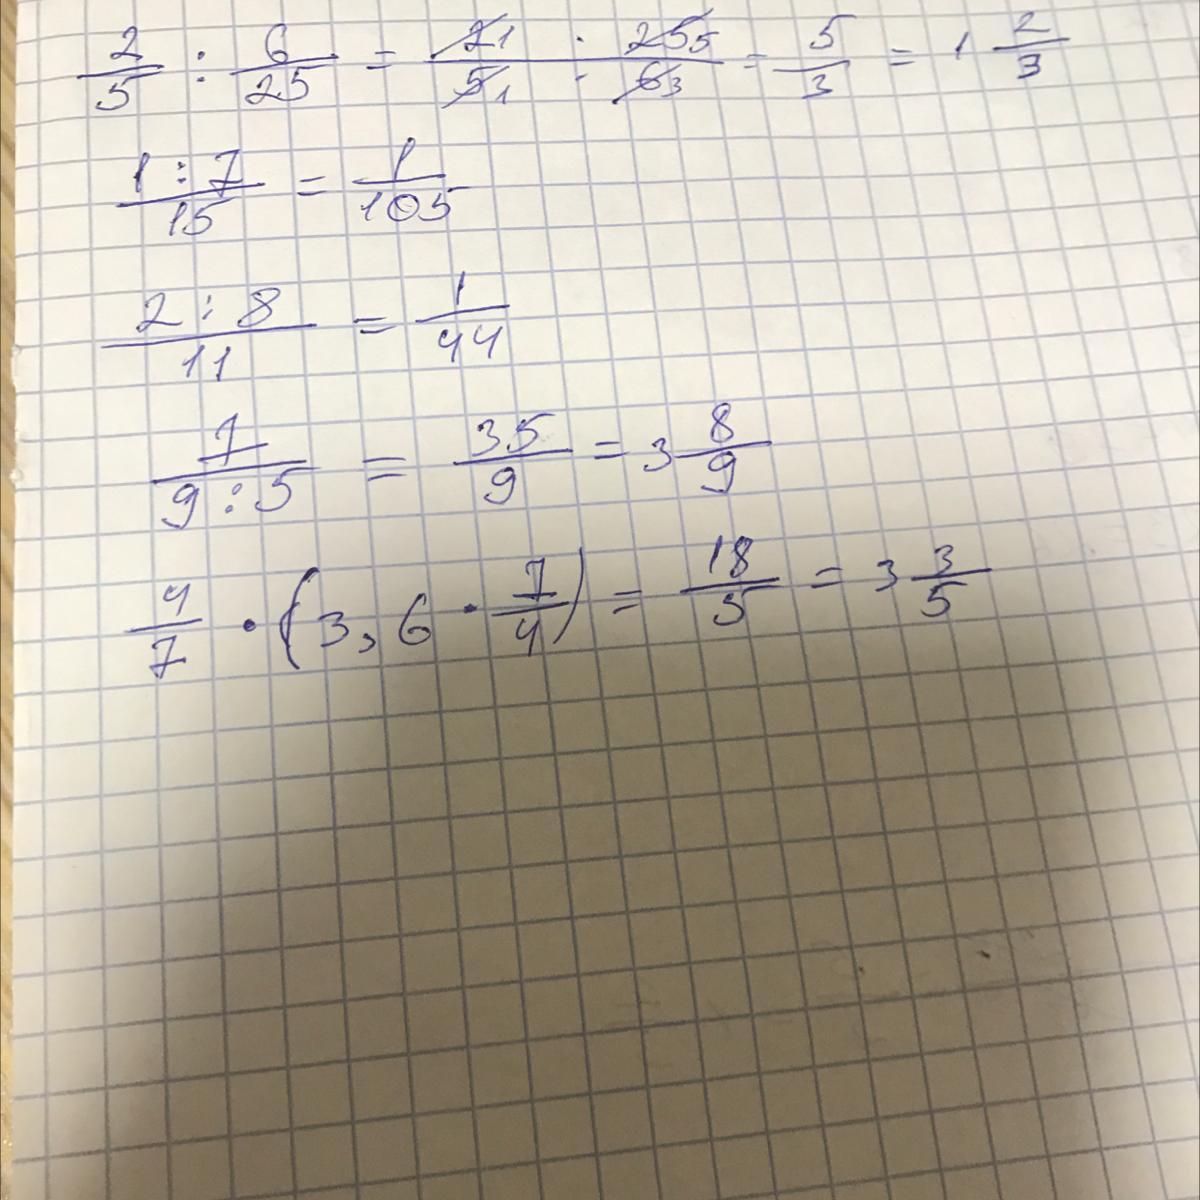 2/5 : 6/25 = 2̶1/5̶1 · 2̶5̶5/6̶3 = 5/3 = 1 2/3
(1 : 7)/15 = 1/105
(2 : 8)/11 = 1/44
7/(9 : 5) = 35/9 = 3 8/9
4/7 · (3,6 · 7/4) = 18/5 = 3 3/5